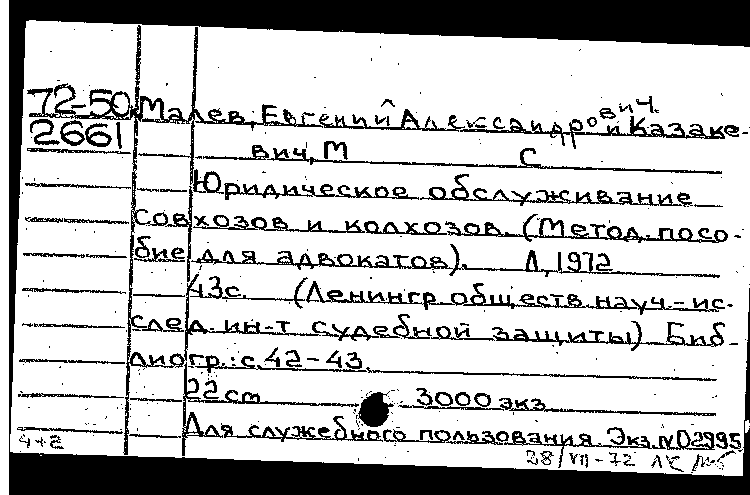 72-50 Малев, Евгений Александрович и Казаке-
2661
вич, М С
Юридическое обслуживание
совхозов и колхозов. (Метод. посо-
бие для адвокатов). Л, 1972
43с. (Ленингр. обществ. науч.-ис-
след. ин-т судебной защиты) Биб-
лиогр.: с. 42-43.
22 cm 3000 экз
Для служебного пользования. Экз. N 02995
4+2 28/VII-72